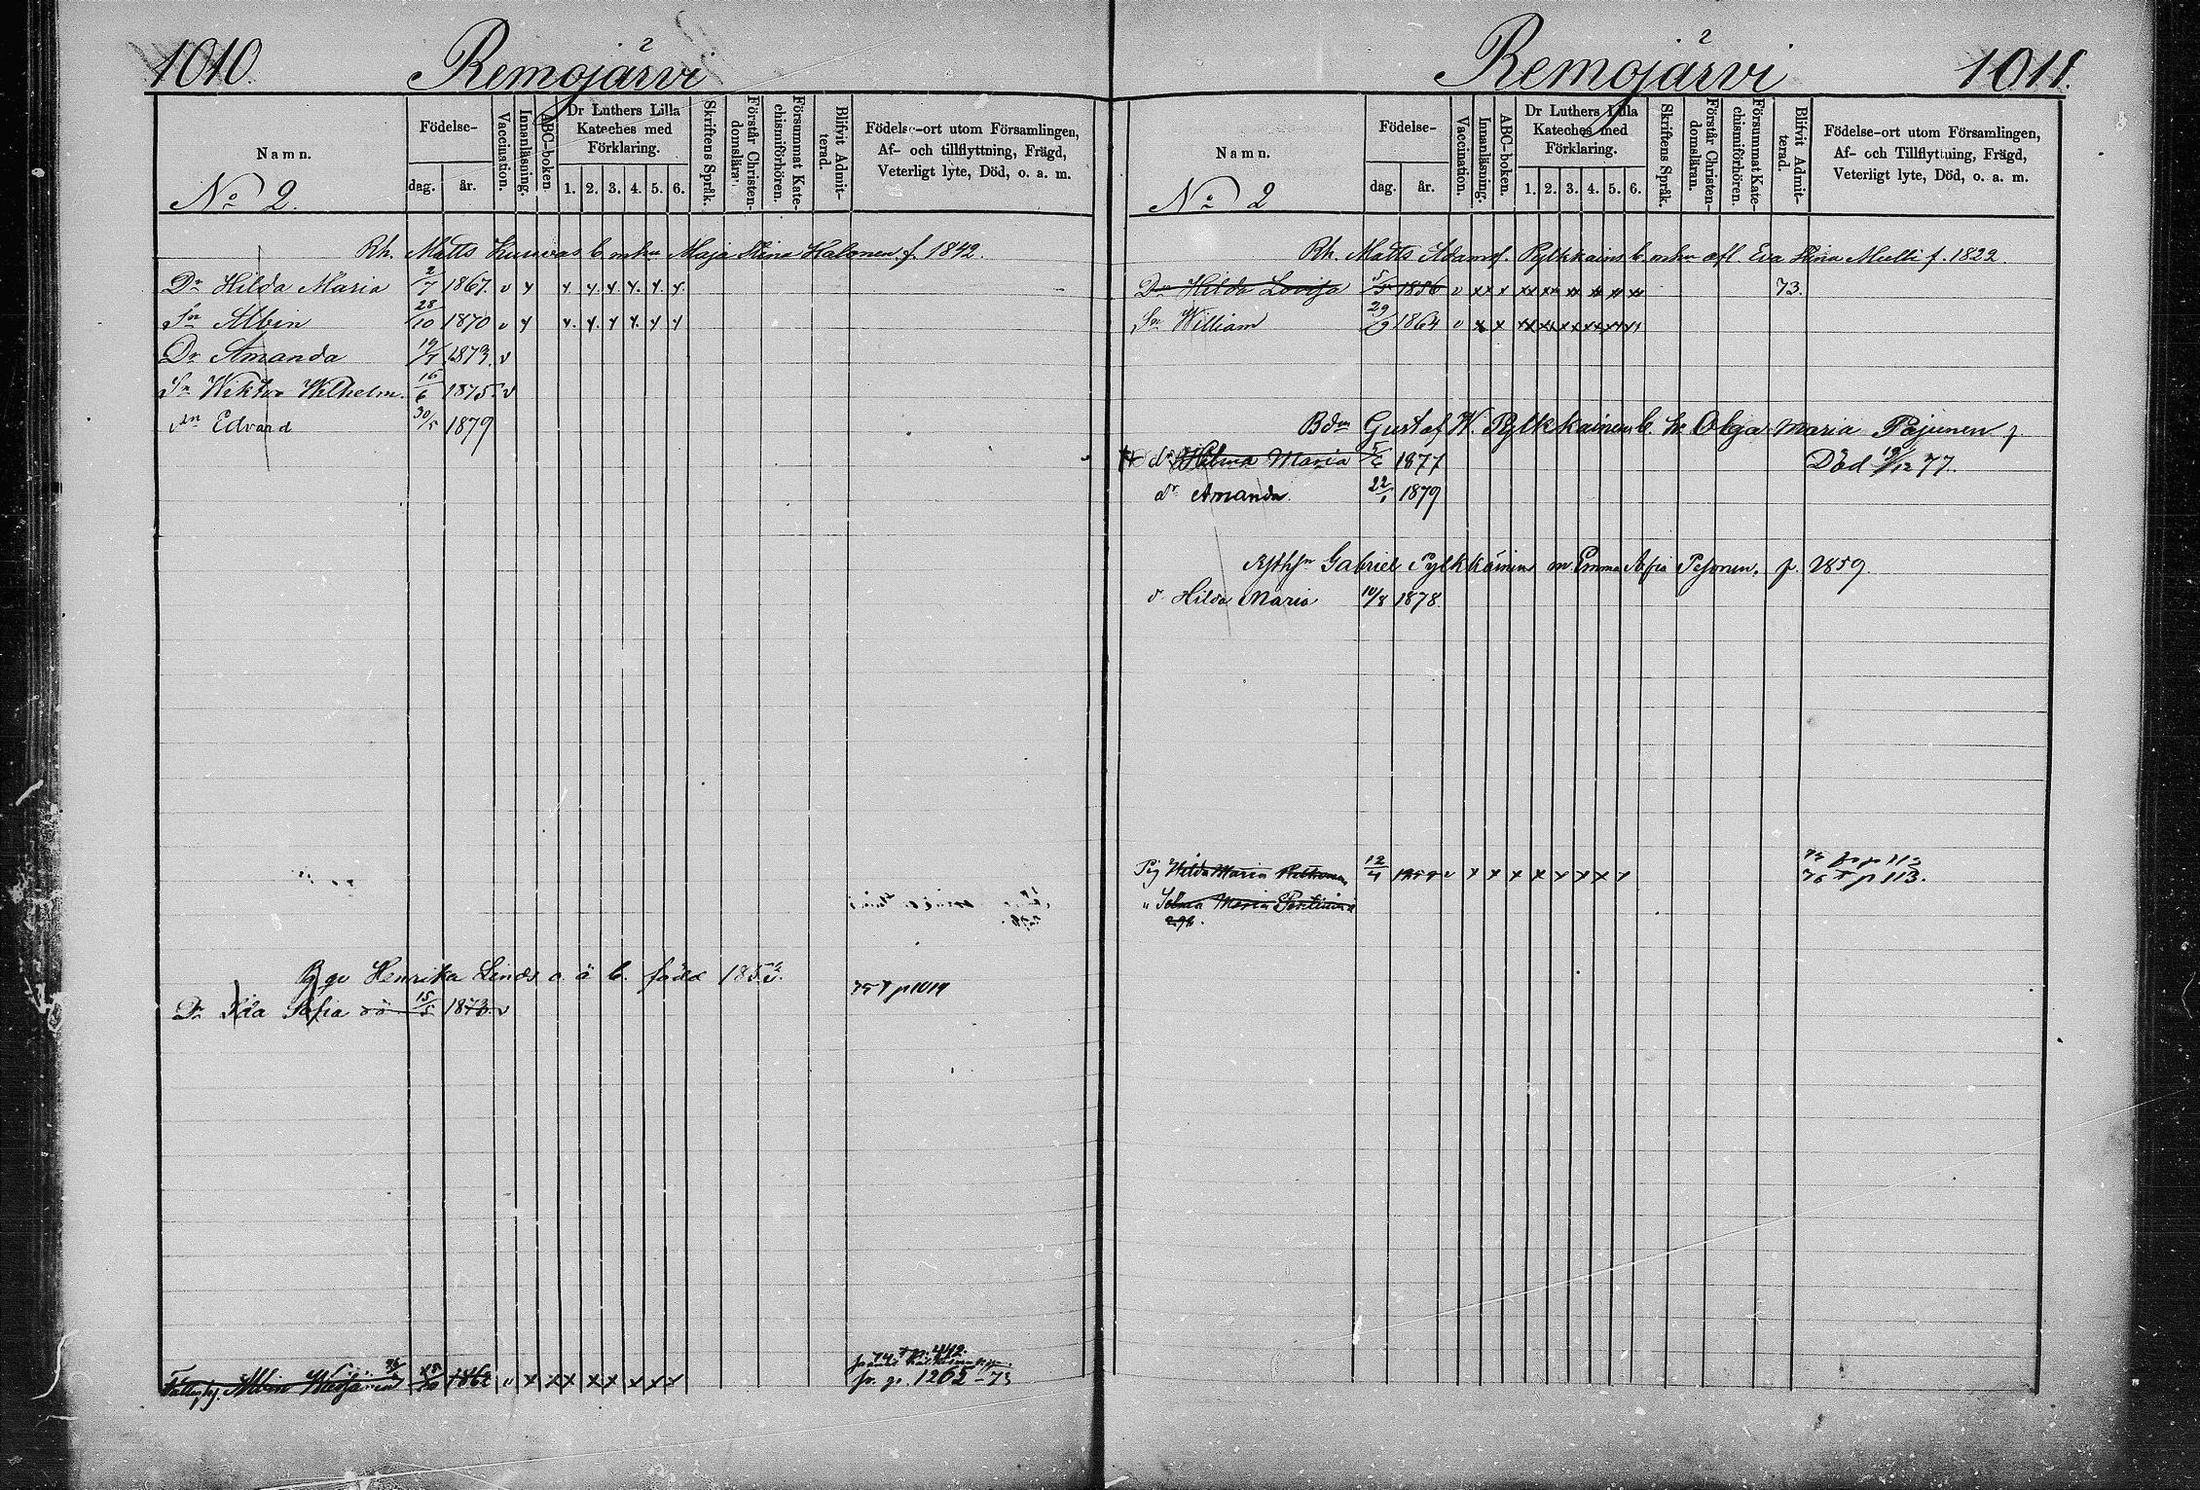 1010.
Remojärvi
Namn.
Födelse-
dag. år.
Vaccination.
Innanläsning.
ABC-boken.
Dr Luthers Lilla Kateches med Förklaring.
1. 2. 3. 4. 5. 6.
Skriftens Språk.
Förstår Christendomsläran.
Försummat Katechismiförhören.
Blifvit Admitterad.
Födelse-ort utom Församlingen,
Af- och tillflyttning, Frägd,
Veterligt lyte, Död, o. a. m.
No 2.
Rh. Matts b. mhu Maja Stina f. 1842.
Dr Hilda Maria 2/7 1867. v
Sn Albin 28/10 1870 v
Dr Amanda 19/7 1873. v
Sn Wiktor Wilhelm. 16/6 1875. v
Sn Edvard 30/5 1879
Henrika Linds o. ä b. född
Dr Ida Sofia 15/5 1873. v 75 T p 1014
Albin v
74 T p. 442.
fr. p. 1265-73
Remojärvi
1011.
Namn.
Födelse-
dag. år.
Vaccination.
Innanläsning.
ABC-boken.
Dr Luthers Lilla Kateches med Förklaring.
1. 2. 3. 4. 5. 6.
Skriftens Språk.
Förstår Christendomsläran.
Försummat Katechismiförhören.
Blifvit Admitterad.
Födelse-ort utom Församlingen,
Af- och Tillflyttning, Frägd,
Veterligt lyte, Död, o. a. m.
No 2
Rh. Matts Adamsf. Pylkkäins b. mhu afl. Eva Stina Mielli f. 1822.
Dr Hilda Lovisa 1856 v 73.
Sn William 29/9 1864 v
Bdn Gustaf W. Pylkkäinens b. h. Olga Maria Pajunen f.
dr Hilma Maria 5/6 1877 Död 19/12 77.
dr Amanda. 22/1 1879
Gabriel Pylkkäinen m. Emma Sofia Pesonen. f. 1859.
d. Hilda Maria 10/8 1878.
Pig Hilda Maria 12/4 v 75 fr p 113
76 T p 113.
" Selma Maria Pentinen
298.